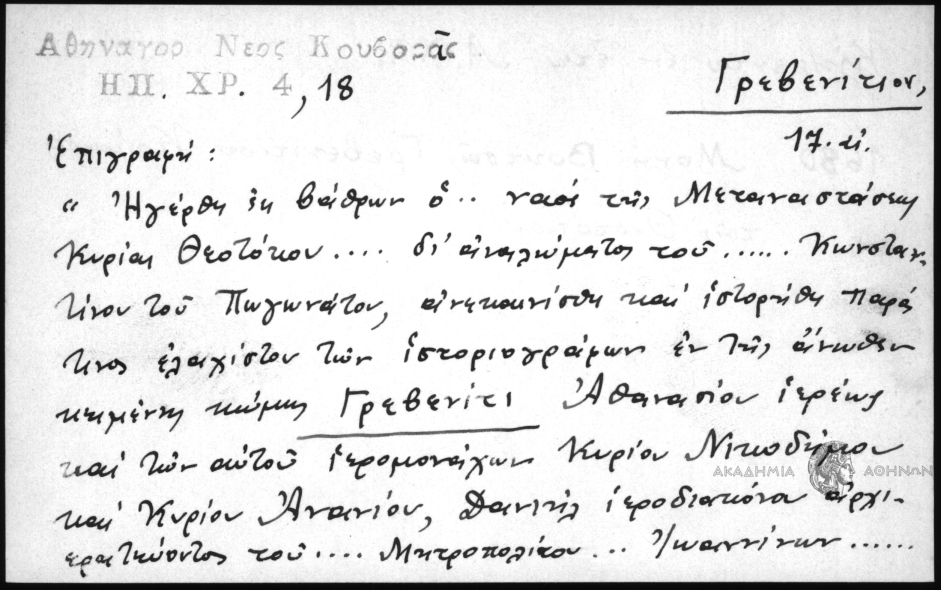 Αθηναγορ Νεος Κουβαρᾶς
ΗΠ. ΧΡ. 4, 18
Γρεβενίτιον,
17. αἰ.
Ἐπιγραφή :
“ Ἠγέρθη ἐκ βάθρων ὁ .. ναός τῆς Μεταναστάσεως
Κυρίας Θεοτόκου .... δι' ἀναλώματος τοῦ ...... Κωνσταν-
τίνου τοῦ Πωγωνάτου, ἀνεκαινίσθη καί ἱστορήθη παρά
τινος ἐλαχίστου τῶν ἱστοριογράφων ἐν τῆς ἄνωθεν
κειμένης κώμης Γρεβενίτι Ἀθανασίου ἱερέως
καί τῶν αὐτοῦ ἱερομονάχων Κυρίου Νικοδήμου
και Κυρίου Ἀνανίου, Δανιήλ ἱεροδιακόνου ἀρχι-
ερατεύοντος τοῦ .... Μητροπολίτου ... Ἰωαννίνων ......
ΑΚΑΔΗΜΙΑ ΑΘΗΝΩΝ